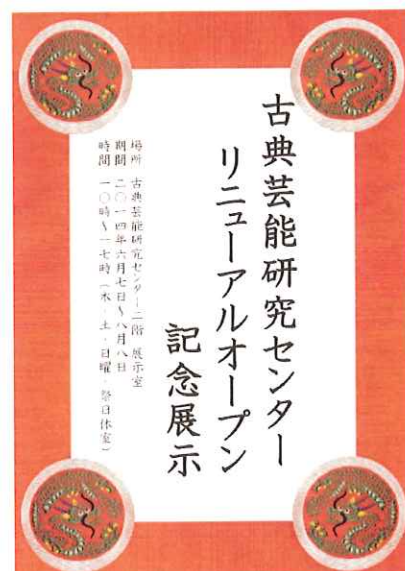 古典芸能研究センター
リニューアルオープン
記念展示
場所 古典芸能研究センター二階 展示室
期間 二〇一四年六月七日〜八月八日
時間 一〇時〜一七時（木・土・日曜・祭日休室）